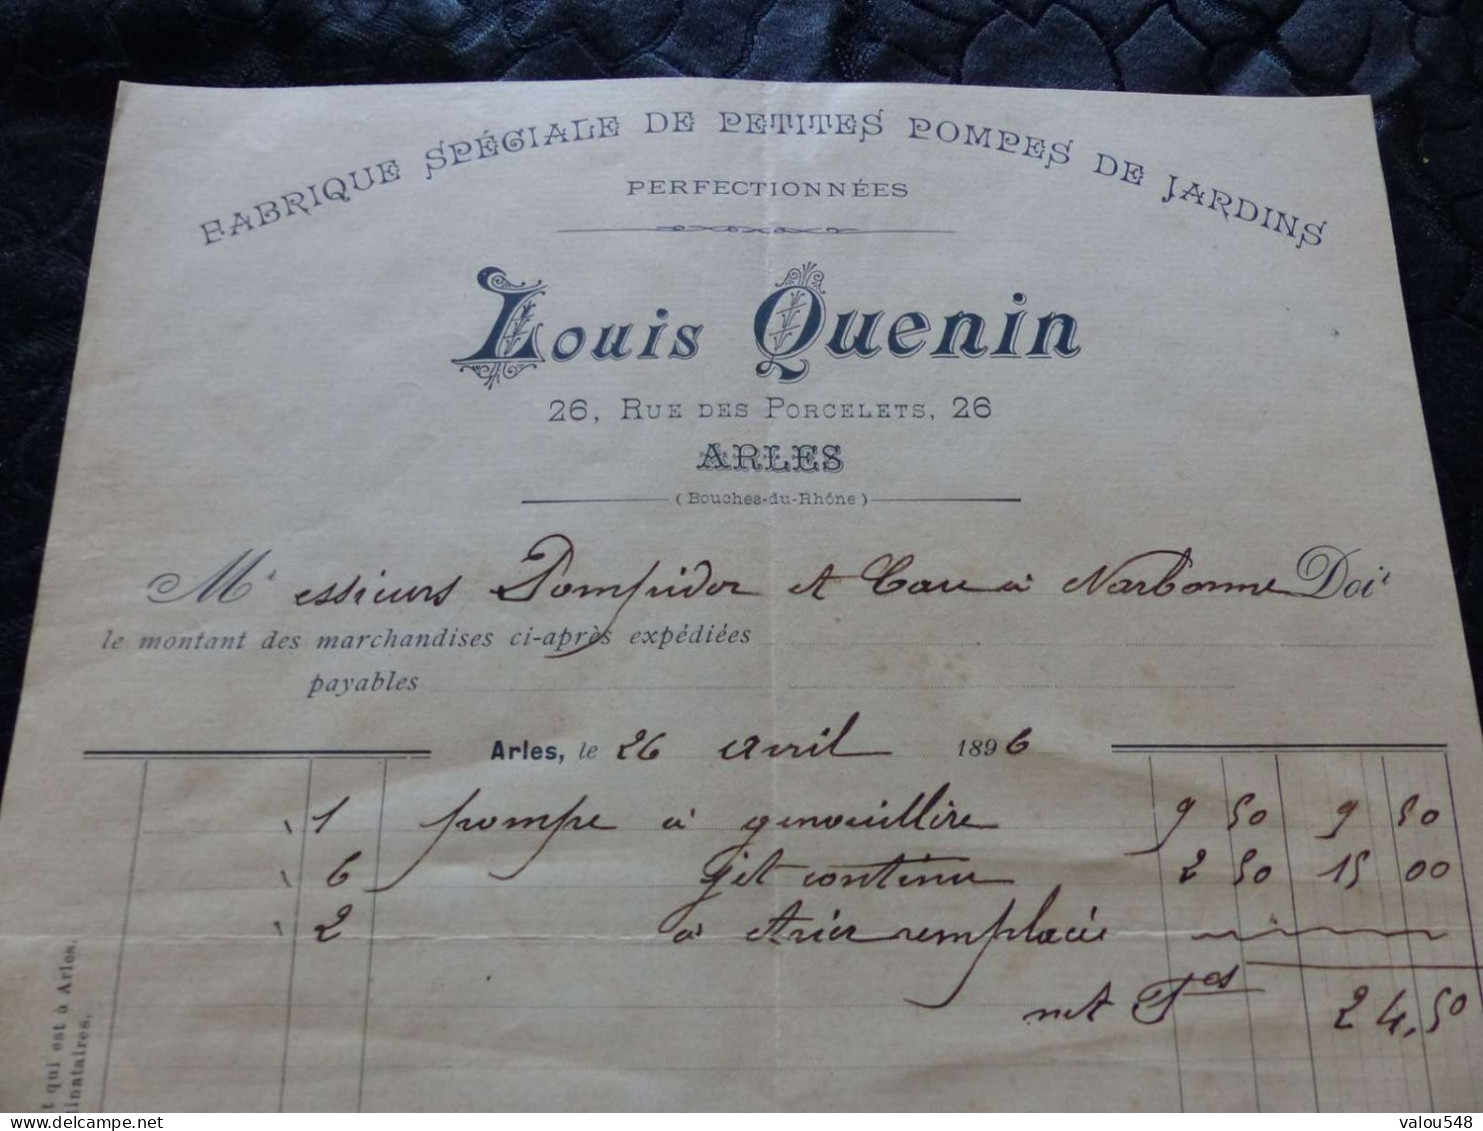 FABRIQUE SPÉCIALE DE PETITES POMPES DE JARDINS
PERFECTIONNÉES
Louis Quenin
26, RUE DES PORCELETS, 26
ARLES
(Bouches-du-Rhône)
Messieurs Pompidor et à Narbonne Doit
le montant des marchandises ci-après expédiées
payables
Arles, le 26 avril 1896
1 pompe à genouillère 9 50 9 50
6 jet continu 2 50 15 00
2 à remplacée
net Fcs 24,50
t qui est à Arles.
linataires.
delcampe.net
valou548